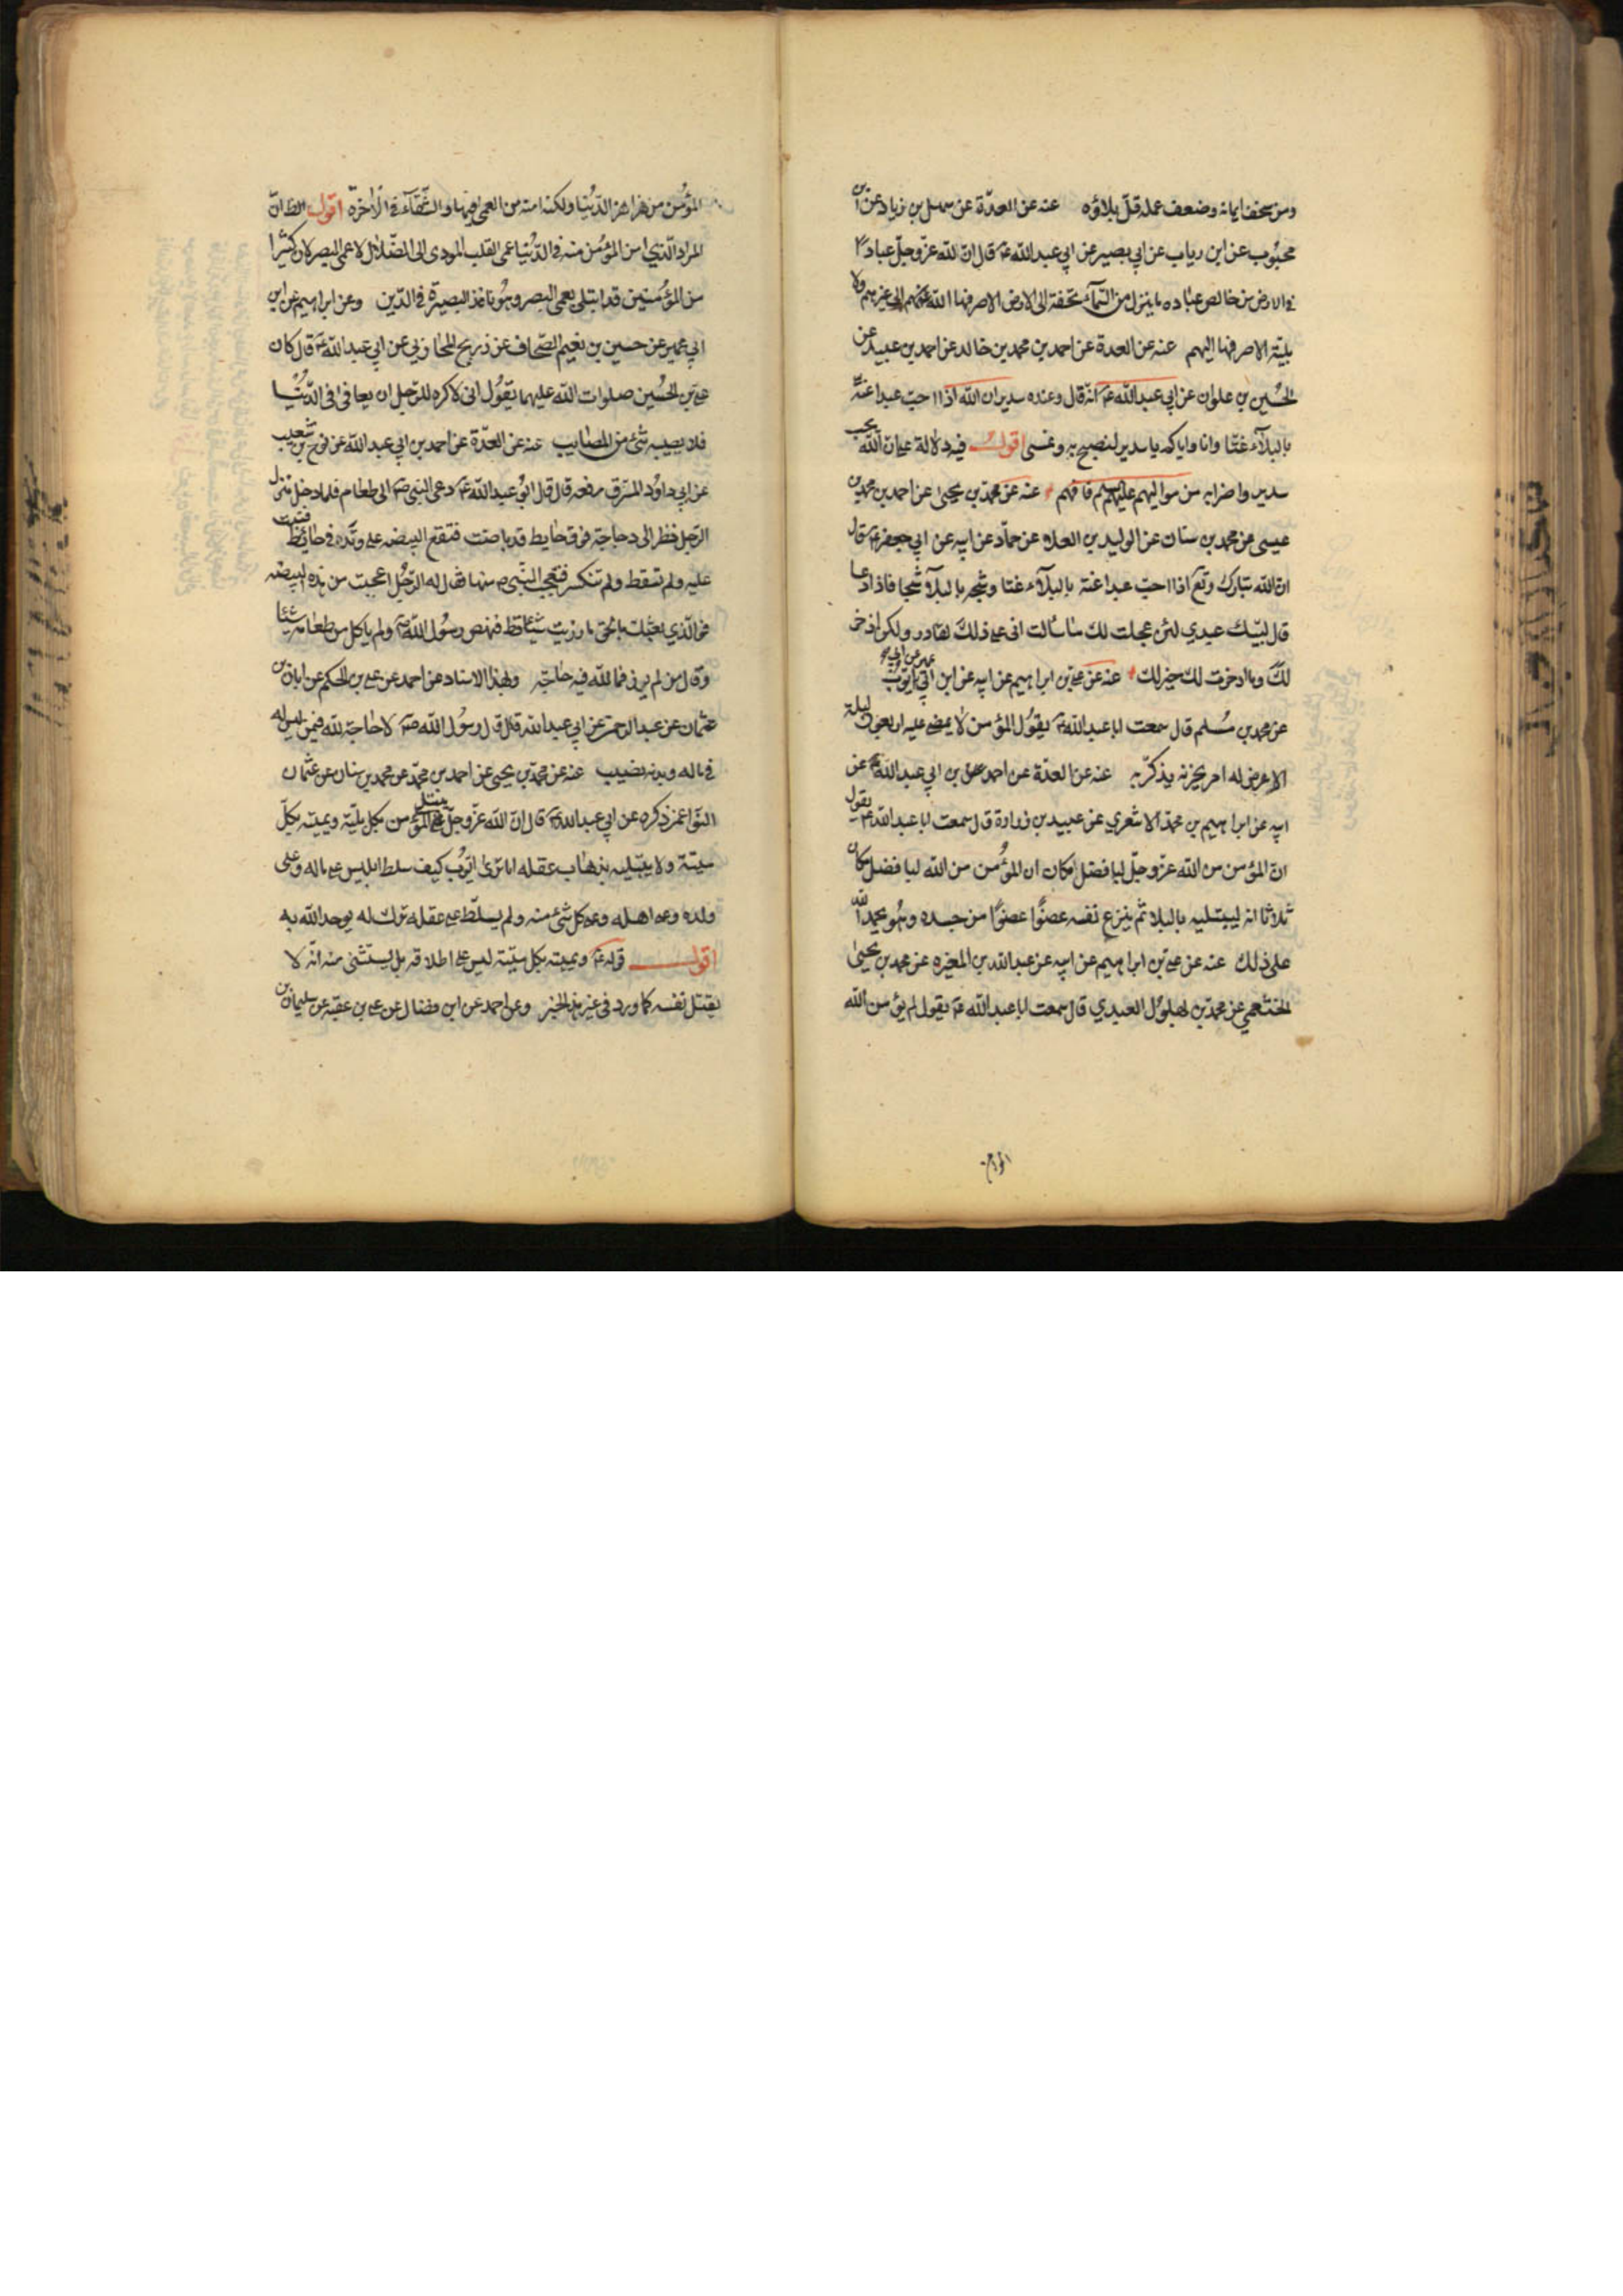 ومن سخف ايمانه وضعف عمله قلّ بلاؤه عنه عن العدّة عن سهل بن زياد عن ابن
محبُوب عن ابن رياب عن ابي بصير عن ابي عبد الله ع قال انّ لله عزّ وجلّ عبادًا
في الارض من خالص عباده ما ينزل من السّمآء تحفة الى الارض الا صرفها الله عنهم الى غيرهم ولا
بليّة الا صرفها اليهم عنه عن العدة عن احمد بن محمد بن خالد عن احمد بن عبيد عن
الحُسين بن علوان عن ابي عبد الله ع انّه قال وعنده سدير ان الله اذا احبّ عبدا غتّه
بالبلآء غتّا وانا واياكم يا سدير لنصبح به ونمسى اقول فيه دلالة على ان الله يحب
سدير واضرابه من مواليهم عليهم السلم فافهم عنه عن محمّد بن يحيى عن احمد بن محمد بن
عيسى عن محمد بن سنان عن الوليد بن العلاء عن حمّاد عن ابيه عن ابي جعفر ع قال
ان الله تبارك وتع اذا احبّ عبدا غتّه بالبلآء غتا وثجه بالبلآء ثجا فاذا دعا
قال لبّيك عبدي لئن عجلت لك ما سألت انى على ذلك لقادر ولكن ادخر
لك وما ادخرت لك خير لك عنه عن علي بن ابراهيم عن ابيه عن ابن ابي عمير عن ابي ايّوب
عن محمد بن مُسلم قال سمعت ابا عبد الله ع يقوُل المؤمن لا يمضى عليه اربعون ليلة
الا عرض له امر يحزنه يذكّر به عنه عن العدّة عن احمد بن ابي عبد الله عن
ابيه عن ابراهيم بن محمّد الاشعري عن عبيد بن زرارة قال سمعت ابا عبد الله ع يقول
انّ المؤمن من الله عزّ وجلّ لبافضل مكان ان المؤُمن من الله لبافضل مكان
ثلاثا انه ليبتليه بالبلا ثم ينزع نفسه عضوًا عضوًا من جسده وهُو يحمد الله
على ذلك عنه عن علي بن ابراهيم عن ابيه عن عبد الله بن المغيره عن محمد بن يحيىٰ
الخثعمي عن محمّد بن بهلوُل العبدي قال سمعت ابا عبد الله ع يقول لم يؤمن الله
المؤمن
المؤُمن من هزاهز الدّنيا ولكنه امنه من العمى فيها والشّقآء في الاٰخرة اقول الظ انّ
المراد الّذي امن المؤُمن منه في الدّنيا عمى القلب المودى الى الضّلال لا عمى البصر لان كثيرا
من المؤمنين قد ابتلى بعمى البصر وهُو نافذ البصيرة في الدّين وعن ابراهيم عن ابن
ابي عمير عن حسين بن نعيم الصّحاف عن ذريح المحاربي عن ابي عبد الله ع قال كان
علي بن الحُسين صلوات الله عليهما يقوُل انى لاكره للرّجل ان يعافى في الدّنُيا
فلا يصيبه شئ من المصايب عنه عن العدّة عن احمد بن ابي عبد الله عن نوح بن شعيب
عن ابي داوُد المسترق رفعه قال قال ابوُ عبد الله ع دعى النبى ص الى طعام فلما دخل منزل
الرّجل نظر الى دجاجة فوق حايط قد باضت فتقع البيضه على وتد في حائط فثبتت
عليه ولم تسقط ولم تنكسر فتعجب النّبى ص منها فقال له الرّجُل اعجبت من هذه البيضه
فو الّذي بعثك بالحق ما رزيت شيئا قط فنهض رسُول الله ص ولم ياكل من طعامه شيئا
وقال من لم يرز فما لله فيه حاجة وبهذا الاسناد عن احمد عن علي بن الحكم عن ابان بن
عثمان عن عبد الرحمن عن ابي عبد الله قال قال رسوُل الله ص لا حاجة لله فيمن ليس له
في ماله وبدنه نصيب عنه عن محمّد بن يحيى عن احمد بن محمّد عن محمد بن سنان عن عثمان
النّوا عمن ذكره عن ابي عبد الله ع قال انّ الله عزّ وجلّ يبتلى المؤمن بكل بليّة ويميته بكلّ
ميتة ولا يبتليه بذهاب عقله اما ترى ايّوُب كيف سلط ابليس على ماله وعلى
ولده وعلى اهله وعلى كل شئ منه ولم يسلّط على عقله ترك له يوحد الله به
اقول قوله ع ويميته بكل ميتة ليس على اطلاقه بل يستثنى منه انّه لا
يقتل نفسه كما ورد في غير هذا الخبر وعن احمد عن ابن فضال عن علي بن عقبه عن سليمان بن